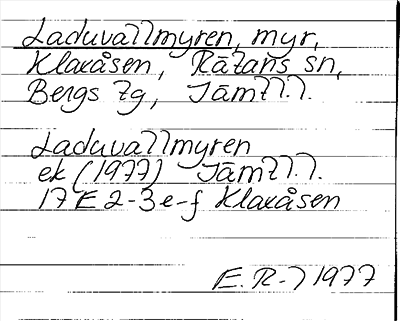 Laduvallmyren, myr,
Klaxåsen, Rätans sn,
Bergs tg, Jämtl.l.
Laduvallmyren
ek (1977) Jämtl.l.
17E 2-3 e-f Klaxåsen
E.R-) 1977